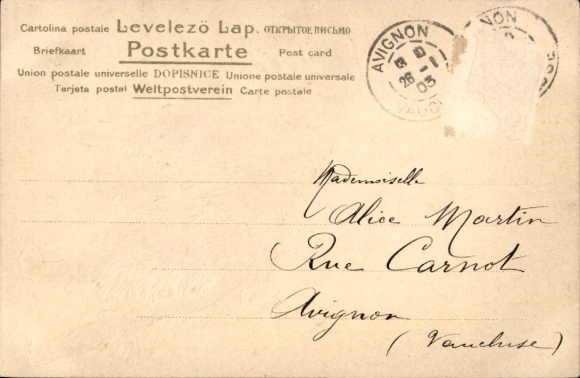 Cartolina postale Levelező Lap. ОТКРЫТОЕ ПИСЬМО
Briefkaart Postkarte Post card
Union postale universelle DOPISNICE Unione postale universale
Tarjeta postal Weltpostverein Carte postale
AVIGNON
26 -1
03
VAUCL
NON
USE
Mademoiselle
Alice Martin
Rue Carnot
Avignon
(Vaucluse)